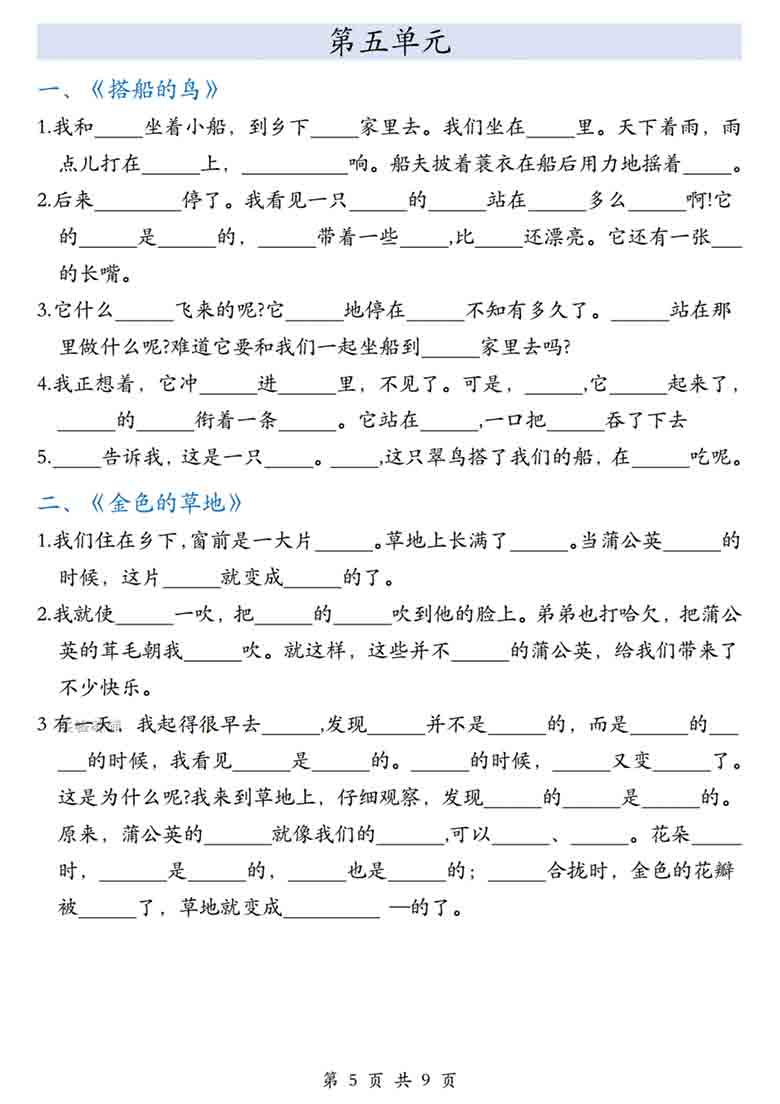 第五单元
一、《搭船的鸟》
1.我和_____坐着小船，到乡下_____家里去。我们坐在_____里。天下着雨，雨
点儿打在______上，___________响。船夫披着蓑衣在船后用力地摇着_____。
2.后来_________停了。我看见一只______的______站在______多么______啊!它
的______是______的，______带着一些_____,比_____还漂亮。它还有一张___
的长嘴。
3.它什么______飞来的呢?它______地停在______不知有多久了。______站在那
里做什么呢?难道它要和我们一起坐船到______家里去吗?
4.我正想着，它冲______进______里，不见了。可是，______,它______起来了，
______的______衔着一条______。它站在______,一口把______吞了下去
5._____告诉我，这是一只_____。_____,这只翠鸟搭了我们的船，在______吃呢。
二、《金色的草地》
1.我们住在乡下,窗前是一大片______。草地上长满了______。当蒲公英______的
时候，这片______就变成______的了。
2.我就使______一吹，把______的______吹到他的脸上。弟弟也打哈欠，把蒲公
英的茸毛朝我______吹。就这样，这些并不______的蒲公英，给我们带来了
不少快乐。
3 有一天，我起得很早去______,发现______并不是______的，而是______的___
___的时候，我看见______是______的。______的时候，______又变______了。
这是为什么呢?我来到草地上，仔细观察，发现______的______是______的。
原来，蒲公英的_______就像我们的_______,可以______、______。花朵_____
时，_______是______的，______也是______的；______合拢时，金色的花瓣
被______了，草地就变成__________ —的了。
第 5 页 共 9 页